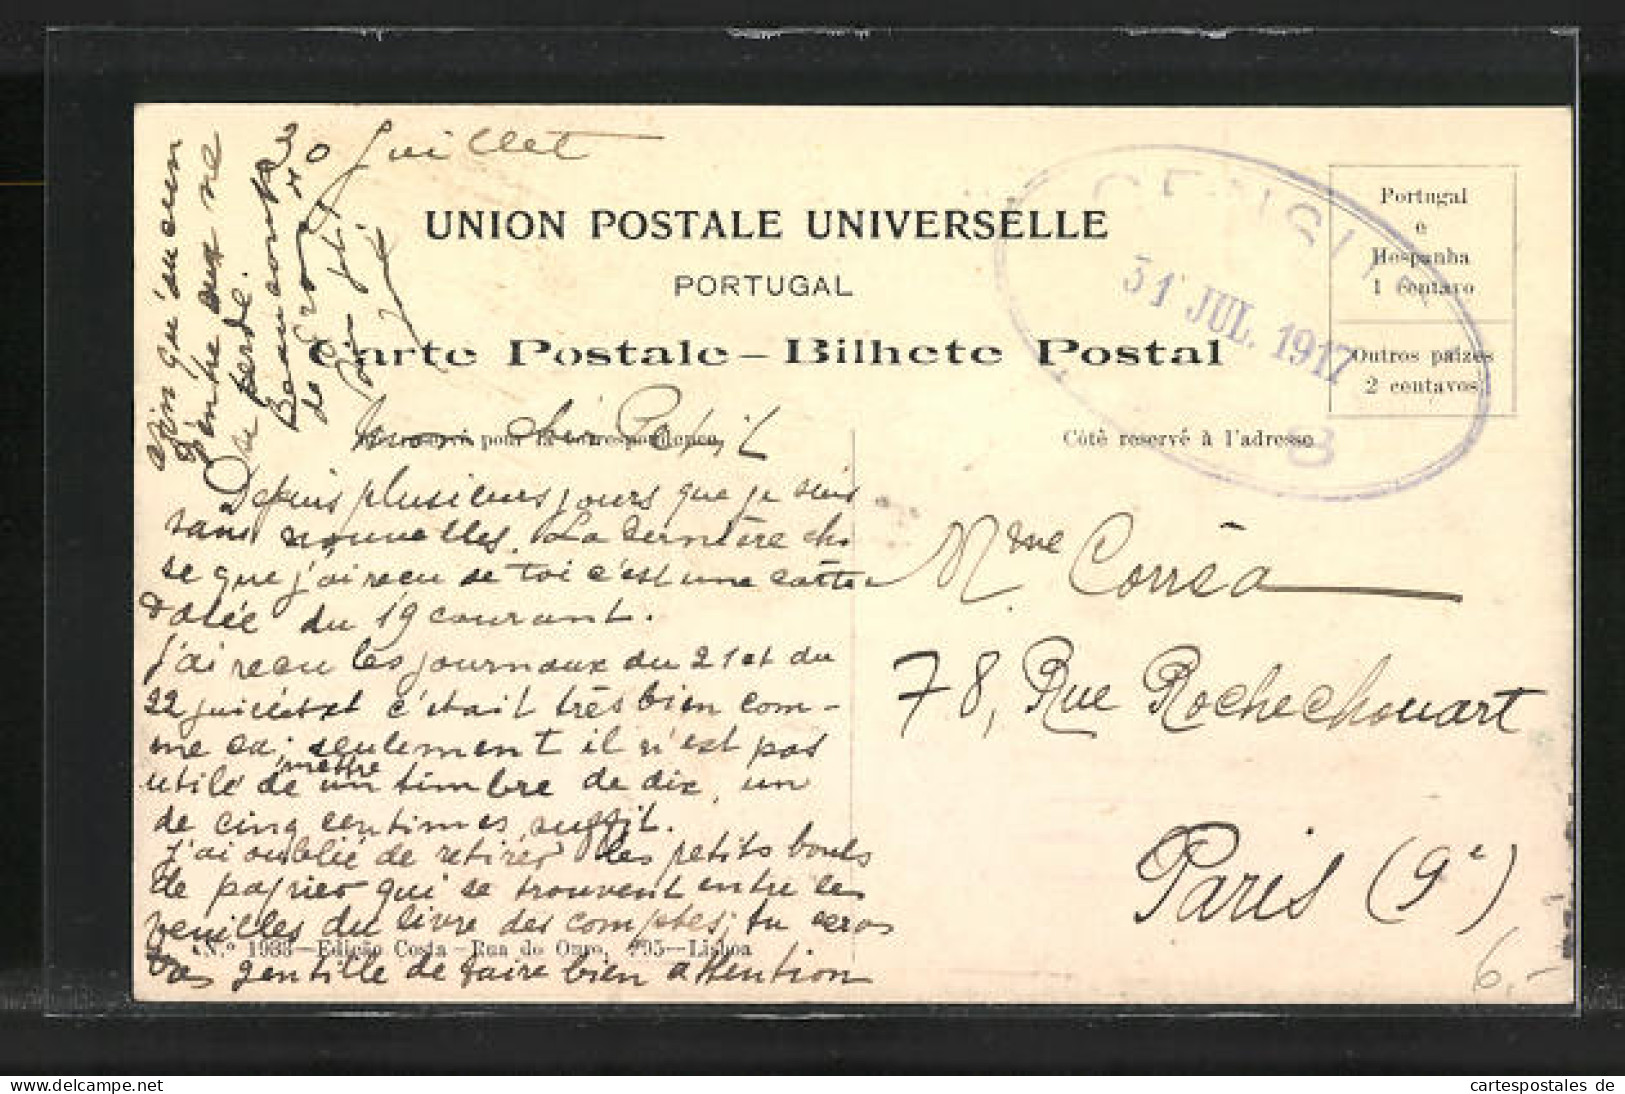 30 Juillet
UNION POSTALE UNIVERSELLE
PORTUGAL
Carte Postale – Bilhete Postal
CENSURA
31 JUL. 1917
8
Portugal
e
Hespanha
1 centavo
Outros paizes
2 centavos
pour la correspondence
Côté reservé à l'adresse
Mon chér
Depuis plusieurs jours que je suis
sans nouvelles. La dernière cho
se que j'ai reçu de toi c'est une carte
datée du 19 courant.
J'ai reçu les journaux du 21 et du
22 juillet c'était très bien com-
me ça; seulement il n'est pas
utile de mettre un timbre de dix, un
de cinq centimes suffit.
J'ai oublié de retirer les petits bouts
de papier qui se trouvent entre les
feuilles du livre des comptes; tu seras
très gentille de faire bien attention
afin qu'aucun
d'entre eux ne
se perde.
Beaucoup
de
ton
Mme Corrêa
78, Rue Rochechouart
Paris (9e)
N.º 1938—Edição Costa—Rua do Ouro, 295—Lisboa
6.-
www.delcampe.net
cartespostales de